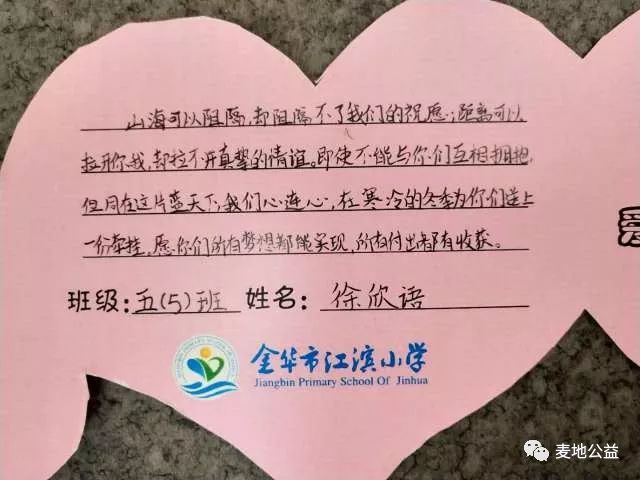 山海可以阻隔,却阻隔不了我们的祝愿;距离可以
拉开你我,却拉不开真挚的情谊。即使不能与你们互相拥抱,
但同在这片蓝天下,我们心连心,在寒冷的冬季为你们送上
一份牵挂,愿你们所有梦想都能实现,所有付出都有收获。
班级:五(5)班 姓名:徐欣语
金华市江滨小学
Jiangbin Primary School Of Jinhua
麦地公益